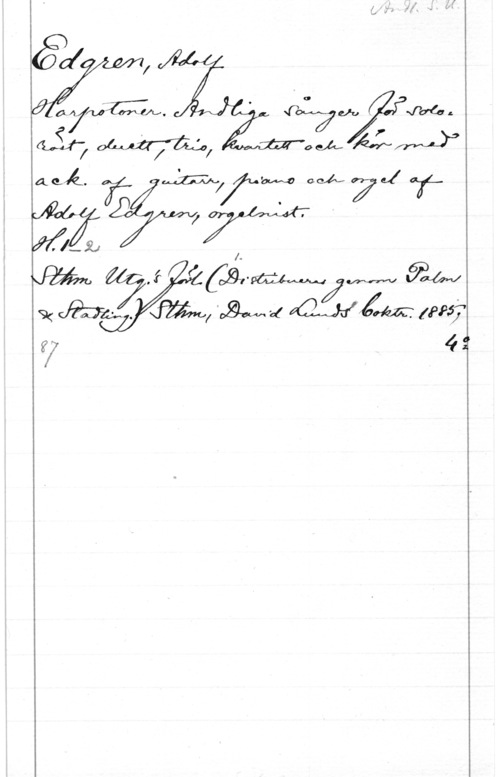 Andl. S. U.
Edgren, Adolf
Harpotoner. Andliga sånger för solo-
röst, duett, trio, kvartett och kör med
ack. af guitarr, piano och orgel af
Adolf Edgren, orgelnist.
H. 1_2
Sthm Utg:s förl. (Distribueras genom Palm
& Stadling.) Sthm, David Lunds boktr. 1885,
87 4:o